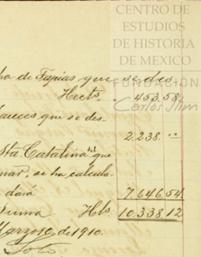 CENTRO DE
ESTUDIOS
DE HISTORIA
DE MEXICO
FUNDACIÓN
Carlos Slim
de Tapias que se des
Hects. 453.58.
que se des
2.238. "
Sta Catalina que
se ha calcula-
dará 7.646.54.
Suma Hbs. 10.338.12
Marzo de 1910.